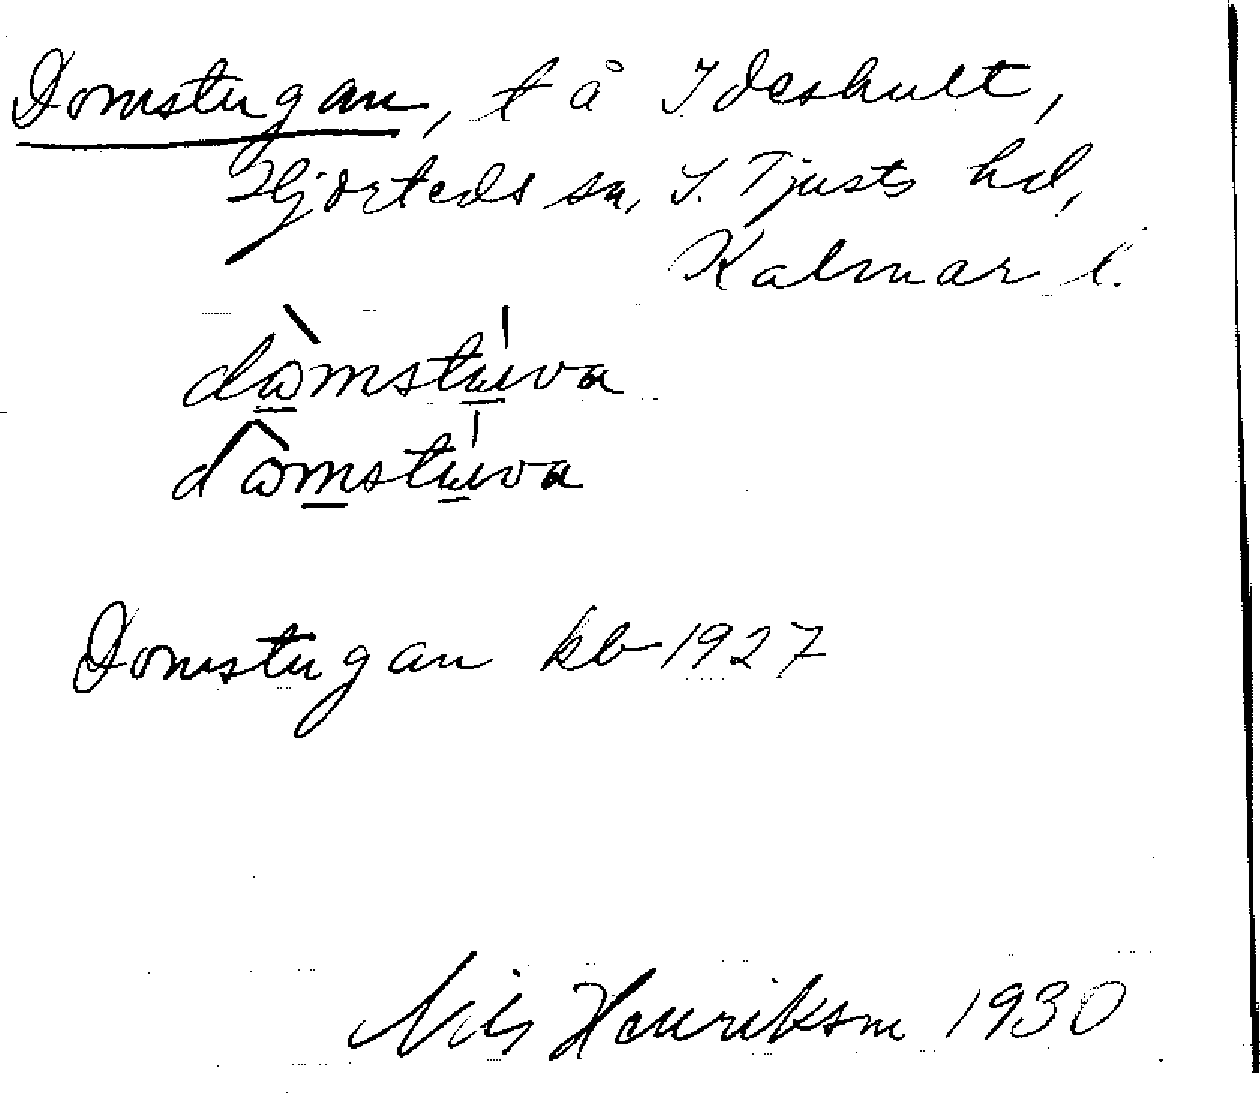 Domstugan, t å Ideshult,
Hjorteds sn, S. Tjusts hd,
Kalmar l.
dòmstúva
dômstúva
Domstugan kb 1927
Nils Henrikson 1930